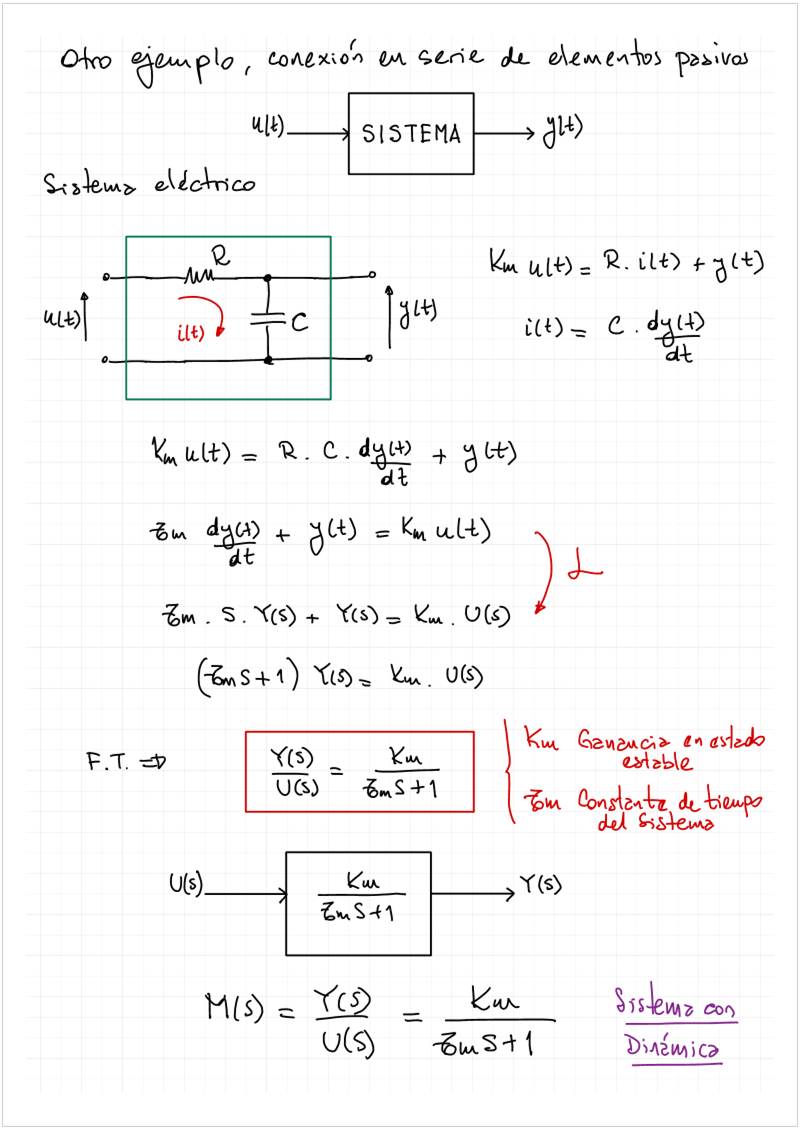 Otro ejemplo, conexión en serie de elementos pasivos
u(t) SISTEMA y(t)
Sistema eléctrico
R
u(t) i(t) C y(t)
Km u(t) = R. i(t) + y(t)
i(t) = C . dy(t)/dt
Km u(t) = R . C . dy(t)/dt + y(t)
τm dy(t)/dt + y(t) = Km u(t)
L
τm . S . Y(s) + Y(s) = Km . U(s)
(τm S + 1) Y(s) = Km . U(s)
F.T. ⇒ Y(s)/U(s) = Km/(τm S + 1)
Km Ganancia en estado
estable
τm Constante de tiempo
del Sistema
U(s) Km/(τm S + 1) Y(s)
M(s) = Y(s)/U(s) = Km/(τm S + 1)
Sistema con
Dinámica